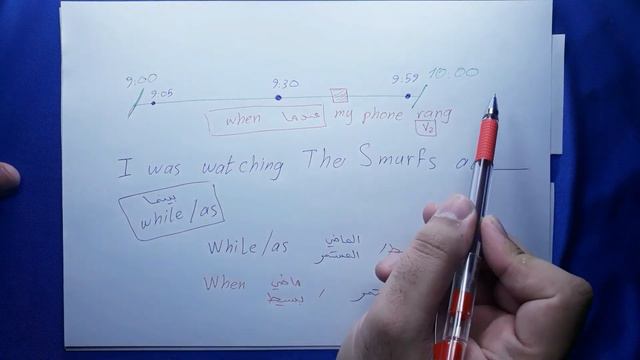 9:00 9:05 9:30 9:59 10:00
when عندما my phone rang
V2
I was watching The Smurfs
بينما
while/as
While/as الماضي المستمر /
When ماضي بسيط /